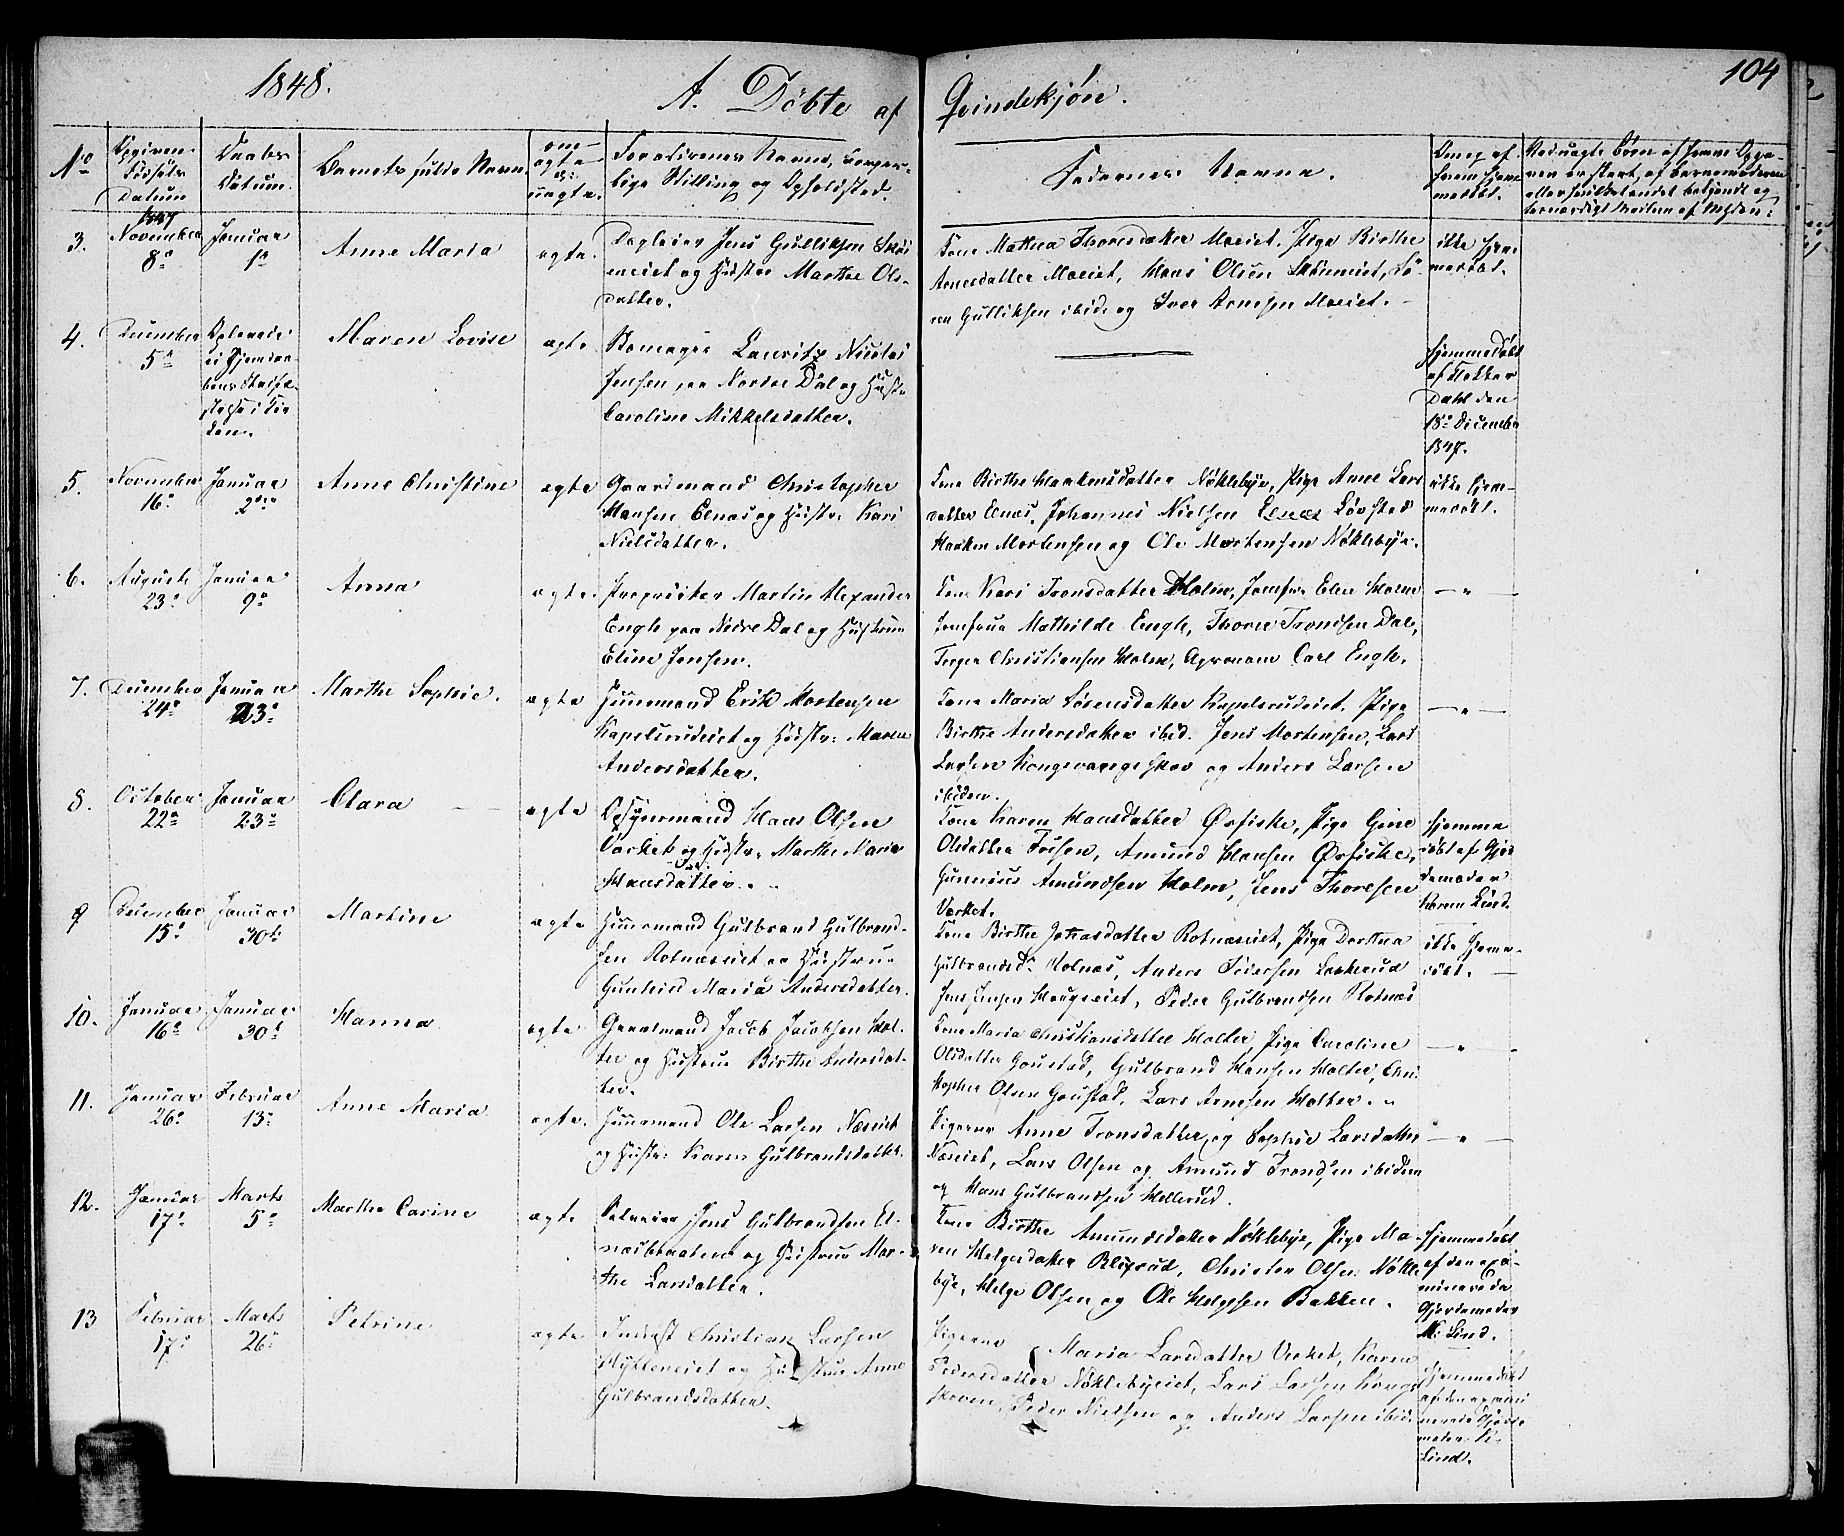 1848.
A. Döbte af Qvindekjön.
104
No
Opgiven Födsels Datum
Daabs Datum.
Barnets fulde Navn.
om ægte el: uægte.
Forældrenes Navne, borgerlige Stilling og Opholdsted.
Faddernes Navne.
3.
1847
November
8de
Januar
1ste
Anne Maria
ægte.
Jens Gulliksen
eiet og Hustru Marthe Ols-
datter.
Kone Mathea Thoresdatter Moeiet, Pige Birthe
Arnesdatter Moeiet, Hans Olsen
Gulliksen ibid: og Iver Arnesen Moeiet.
ikke hjem-
medöbt.
4.
December
5te
Maren Lovise
ægte
Lauritz Nicolai
Jensen, paa Nordre Dal og Hustr
Caroline Mikkelsdatter.
Hjemmedöbt
af Klokker
Dahl den
18de December
1847.
5.
November
16de
Januar
2den
Anne Christine
ægte
Gaardmand Christopher
Hansen Elnæs og Hustr: Kari
Nielsdatter.
Kone Birthe Haakensdatter Nöklebye, Pige Anne Lars
datter Elnæs, Johannes Nielsen Elnæs
Haaken Mortensen og Ole Mortensen Nöklebye.
ikke hjem-
medöbt.
6.
August
23de
Januar
9de
Anna
ægte.
Proprietær Martin Alexander
Engh paa Nedre Dal og Hustrue
Eline Jensen.
Kone Kari Tronsdatter Holm, Jomfr: Elen Holm
Jomfrue Mathilde Engh, Thorer Trondsen Dal,
Christiansen Holm, Carl Engh.
7.
December
24de
Januar
23de
Marthe Sophie.
ægte
Huusmand Erik Mortensen
Kapelsrudeiet og Hustr: Maren
Andersdatter.
Kone Maria Sörensdatter Kapelsrudeiet, Pige
Birthe Andersdatter ibid. Jens Mortensen, Lars
Larsen og Anders Larsen
ibidem.
8.
October
22de
Januar
23de
Clara
ægte
Opsynsmand Hans Olsen
Værket og Hustr: Marthe Maria
Hansdatter.
Kone Karen Hansdatter Örfiske, Pige Gine
Olsdatter Fossen, Amund Hansen Örfiske,
Gunerius Amundsen Holm, Jens Thoresen
Værket.
Hjemme
döbt af Gjor
demoder
Karen Lind.
9
December
15de
Januar
30te
Martine
ægte
Huusmand Gulbrand Gulbrand-
sen Rotnæseiet og Hustru
Gunhild Maria Andersdatter.
Kone Birthe Rotnæseiet, Pige Dorthea
Gulbrandsd: Holnæs, Anders Pedersen
Jens Jensen Haugseiet, Peder Gulbrandsen Rotnæs
ikke hjemme-
döbt.
10.
Januar
16de
Januar
30te
Hanna
ægte
Gaardmand Jacob Jacobsen Hol-
ter og Hustrue Birthe Andersdat-
ter.
Kone Maria Christiansdatter Holter, Pige Caroline
Olsdatter Goustad, Gulbrand Hansen Holter, Chri-
stopher Olsen Goustad, Lars Arnesen Holter.
11.
Januar
26de
Februar
13de
Anne Maria
ægte.
Huusmand Ole Larsen Næseiet
og Hustr: Karen Gulbrandsdatter.
Pigerne Anne Tronsdatter og Sophie Larsdatter
Næseiet, Lars Olsen og Amund Trondsen ibidem
og Hans Gulbrandsen Hellerud.
12.
Januar
17de
Marts
5te
Marthe Carine
ægte
Jens Gulbrandsen El-
næsbraaten og Hustrue Mar-
the Larsdatter.
Kone Birthe Amundsdatter Nöklebye, Pige Ma-
ren Helgesdatter Christen Olsen Nökle
bye, Helge Olsen og Ole Helgesen Bakken.
Hjemmedöbt
af den exa-
minerede
Gjordemoder
M: Lind.
13
Februar
17de
Marts
26de
Petrine
ægte
Inderst Christian Larsen
Hytteneiet og Hustrue Anne
Gulbrandsdatter.
Pigerne Maria Larsdatter Verket, Karen
Pedersdatter Nöklebyeiet, Lars Larsen Kongs
skoven, Peder Nielsen og Anders Larsen ibid.
Hjemmedöbt
af den exami
nerede Gjorde
moder K.
Lind.